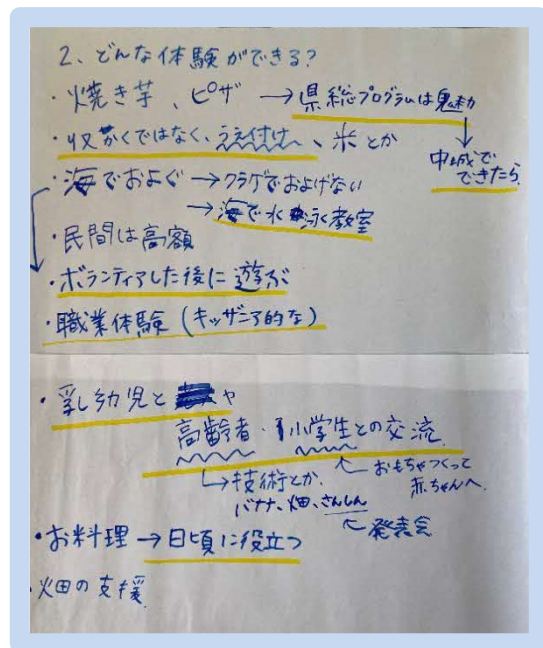 2、どんな体験ができる?
・焼き芋、ピザ → 県総プログラムは魅力
↓
中城でできたら
・収かくではなく、うえ付け、米とか
・海でおよぐ → クラゲでおよげない
→ 海で水泳教室
・民間は高額
・ボランティアした後に遊ぶ
・職業体験(キッザニア的な)
・乳幼児と や
高齢者・小学生との交流
↳技術とか ← おもちゃつくって
バナナ、畑、さんしん 赤ちゃんへ
← 発表会
・お料理 → 日頃に役立つ
・畑の支援